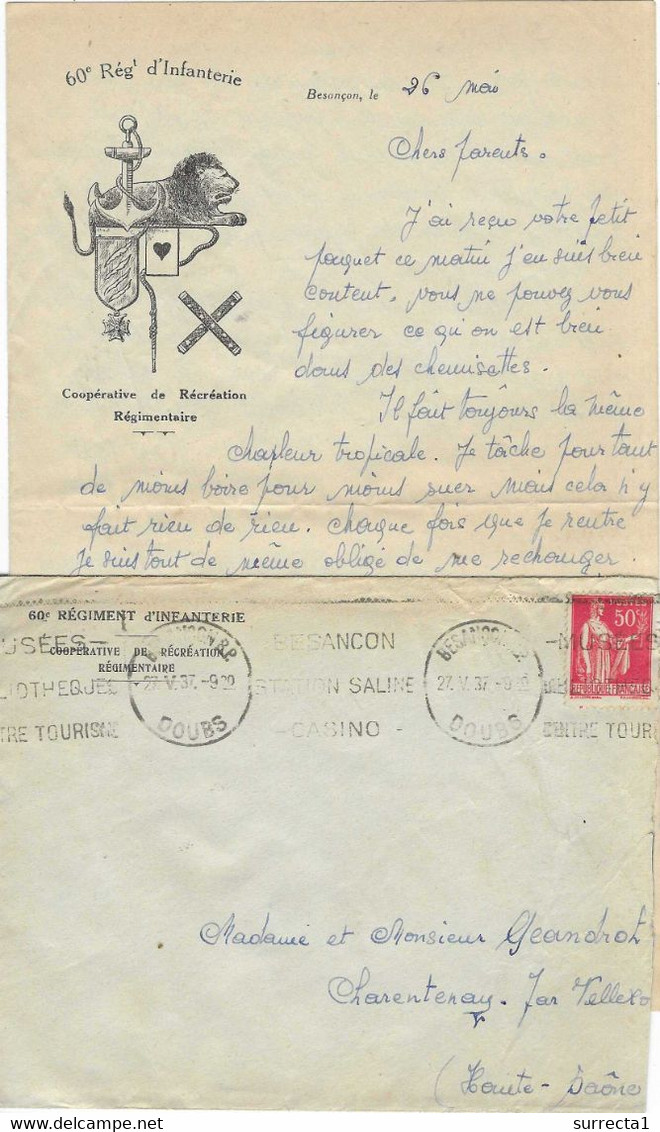 60e Régt d'Infanterie
Besançon, le 26 mai
Chers parents.
J'ai reçu votre petit
paquet ce matin j'en suis bien
content, vous ne pouvez vous
figurer ce qu'on est bien
dans des chemisettes.
Coopérative de Récréation
Régimentaire
Il fait toujours la même
chaleur tropicale. Je tâche pourtant
de moins boire pour moins suer mais cela n'y
fait rien de rien. Chaque fois que je rentre
je suis tout de même obligé de me rechanger.
60e RÉGIMENT d'INFANTERIE
COOPÉRATIVE DE RÉCRÉATION
RÉGIMENTAIRE
BESANÇON R.P.
27. V. 37. -9 20
DOUBS
BESANCON
STATION SALINE
- CASINO -
BESANÇON R.P.
27. V. 37. -9 20
DOUBS
-MUSÉES
CENTRE TOUR
50c
REPUBLIQUE FRANÇAISE
MUSÉES-
LIOTHEQUES
TRE TOURISME
Madame et Monsieur Geandrot
Charentenay. par Vellexo
(Haute-Saône
delcampe.net
surrecta1